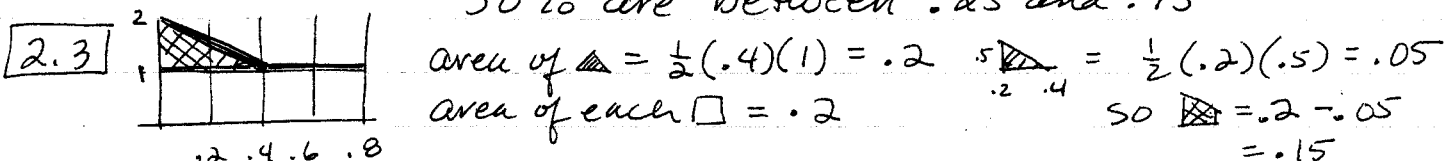 so % are between .25 and .75
2.3
2
1
.2 .4 .6 .8
area of = 1/2 (.4)(1) = .2
area of each □ = .2
.5
.2 .4
= 1/2 (.2)(.5) = .05
so = .2 - .05
= .15